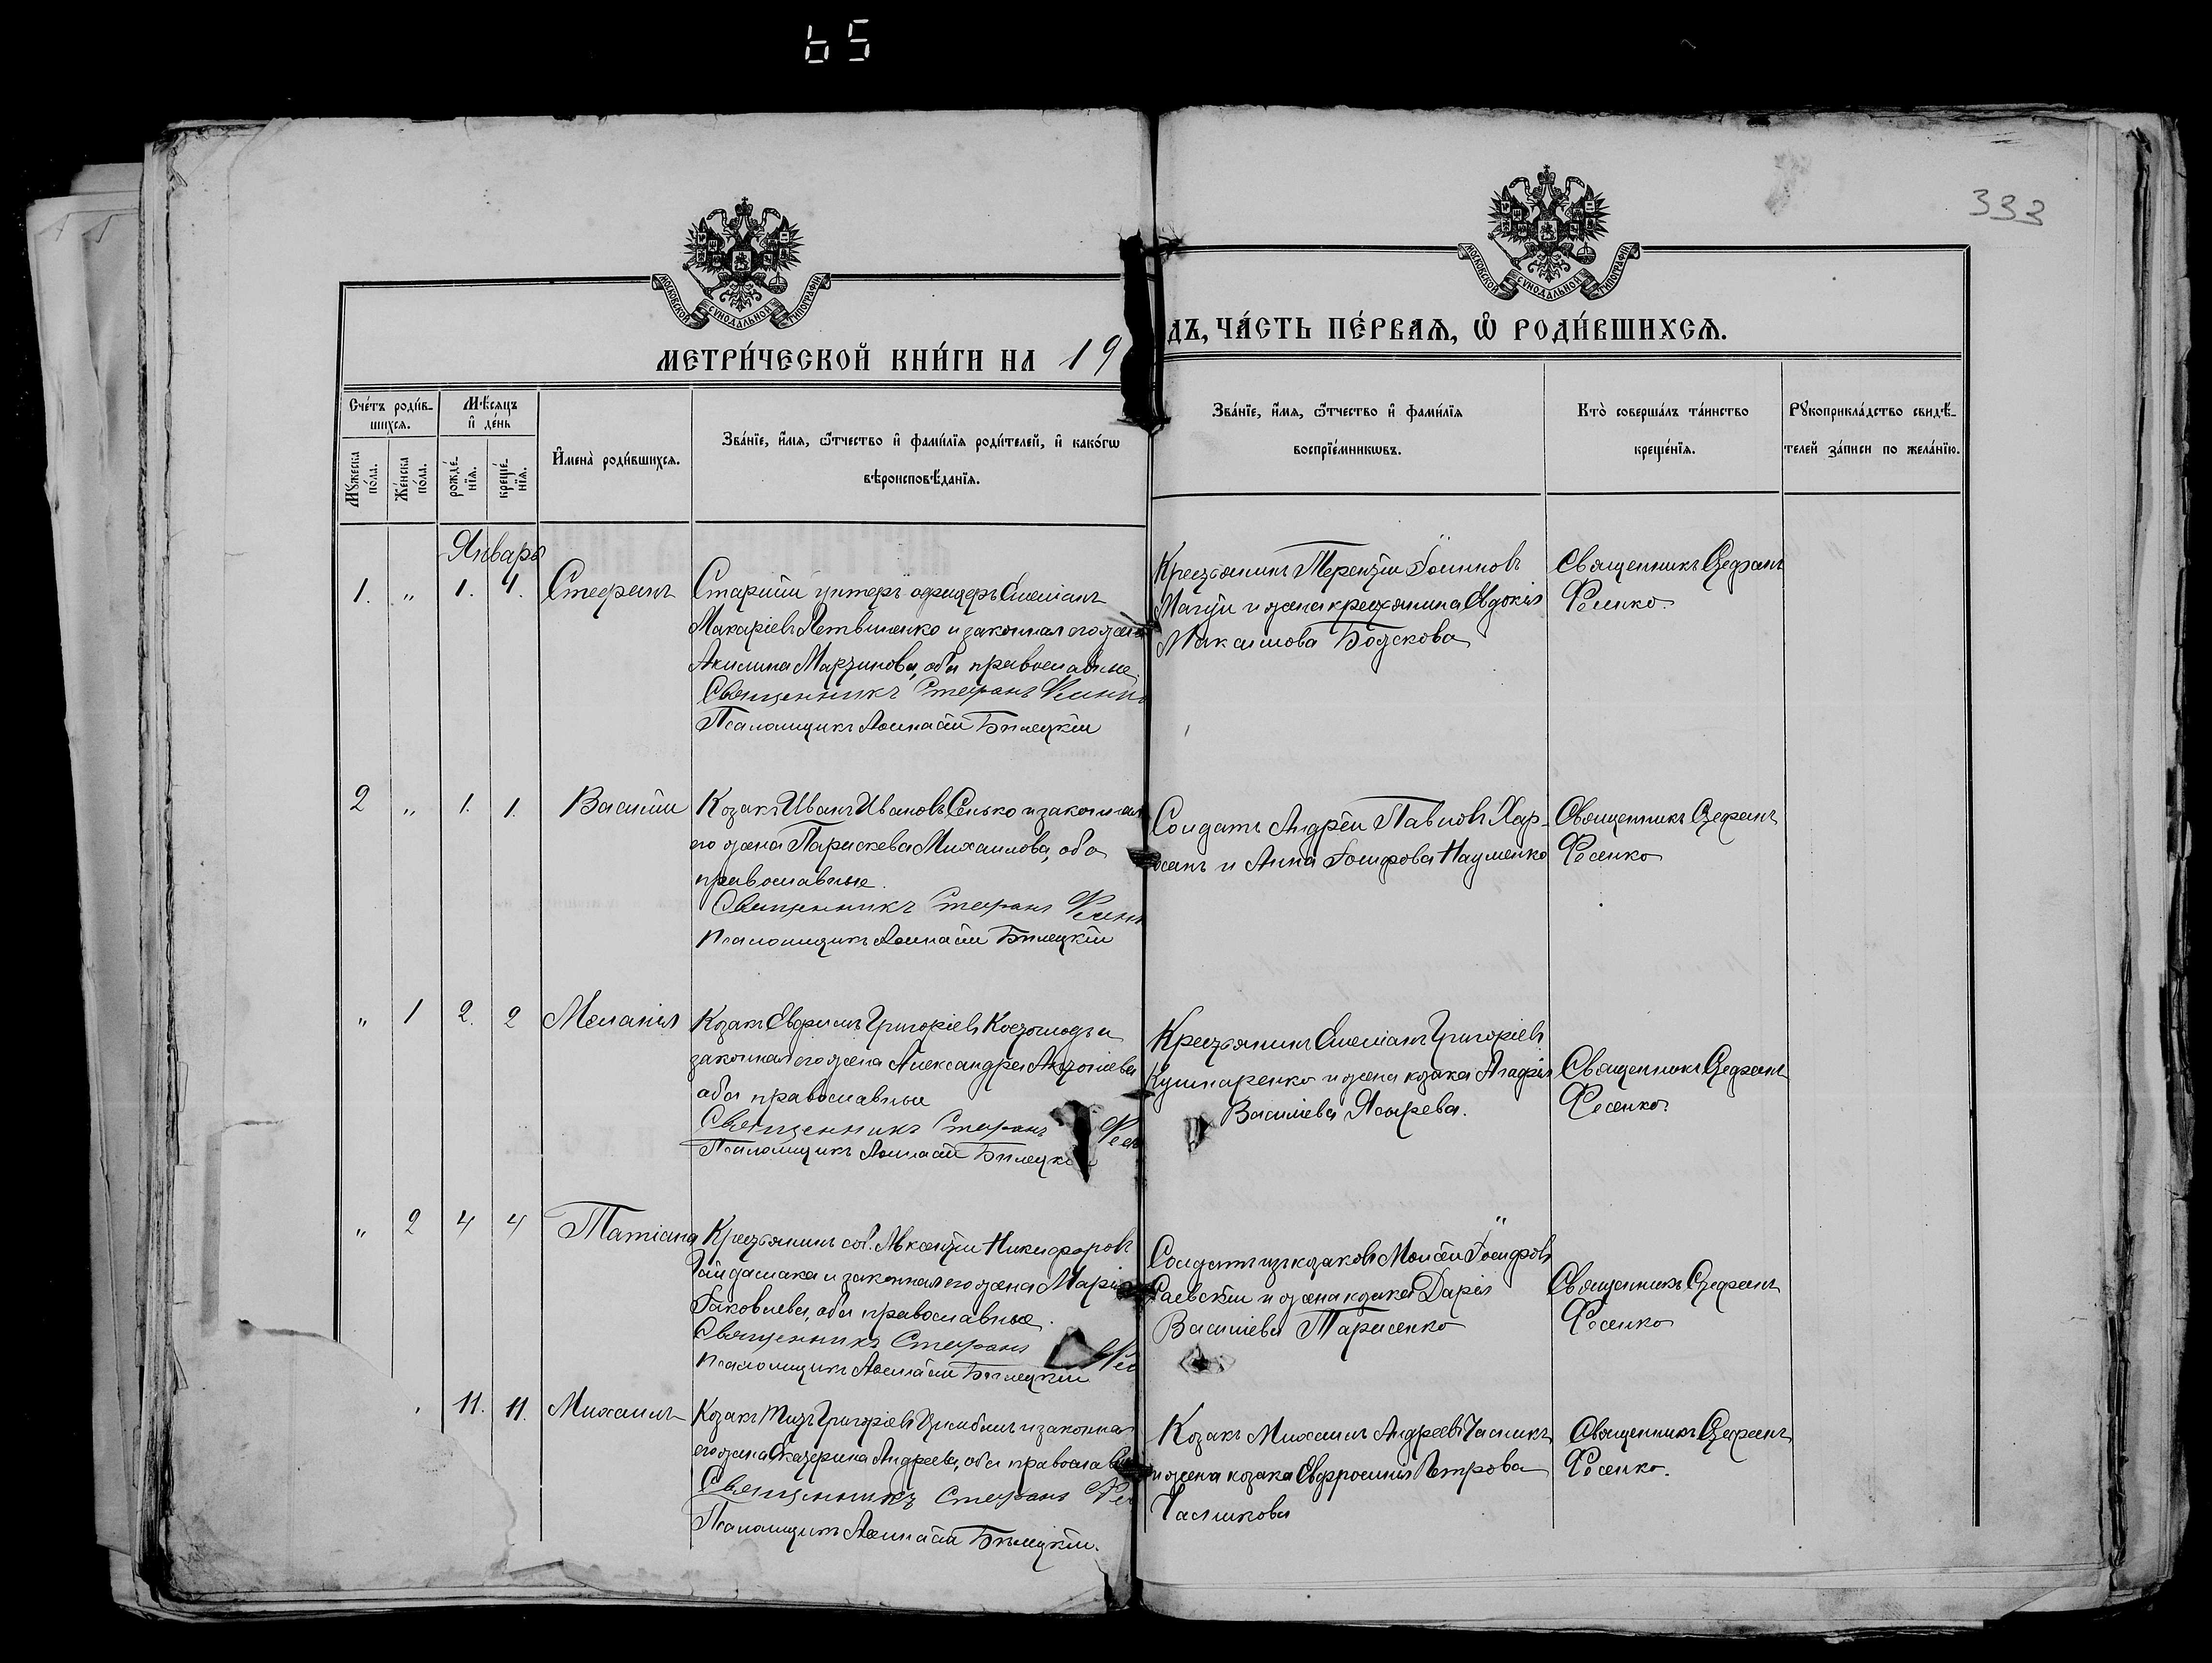 65
333
МОСКОВСКОЙ СУНОДАЛЬНОЙ ТИПОГРАФІИ
МОСКОВСКОЙ СУНОДАЛЬНОЙ ТИПОГРАФІИ
МЕТРИ́ЧЕСКОЙ КНИ́ГИ НА 19
ДЪ, ЧА́СТЬ ПЕ́РВАѦ, Ѡ҆ РОДИ́ВШИХСѦ.
Сче́тъ роди́в-
шихсѧ.
Мѣ́сѧцъ
и҆ де́нь
Мꙋ́жеска
по́ла.
Же́нска
по́ла.
рожде́-
нїѧ.
креще́-
нїѧ.
И҆мена̀ роди́вшихсѧ.
Зва́нїе, и҆́мѧ, ѻ҆́тчество и҆ фами́лїѧ роди́телей, и҆ како́гѡ
вѣроисповѣ́данїѧ.
Зва́нїе, и҆́мѧ, ѻ҆́тчество и҆ фами́лїѧ
воспрїе́мникѡвъ.
Кто̀ соверша́лъ та́инство
креще́нїѧ.
Рꙋкоприкла́дство свидѣ́-
телей за́писи по жела́нїю.
Январь
1. „ 1. 4. Стефанъ
Старшій унтеръ офицеръ Емеліанъ
Макаріевъ Литвиненко и законная его жена
Акилина Мартинова, оба православные
Священникъ Стефанъ
Псаломщикъ Аѳанасій Билецкій
Крестьянинъ Терентій Іоанновъ
и жена крестьянина Евдокія
Максимова Божкова
Священникъ Стефанъ
Фесенко.
2 „ 1. 1. Василій
Козакъ Иванъ Ивановъ Сенько и законная
его жена Параскева Михаилова, оба
православные.
Священникъ Стефанъ
Псаломщикъ Аѳанасій Билецкій
Солдатъ Андрей Павловъ Хар-
и Анна Іосифова Науменко
Священникъ Стефанъ
Фесенко
„ 1 2. 2 Меланія
Козакъ Евфимъ Григоріевъ и
законная его жена Александра Антоніева
оба православные
Священникъ Стефанъ Фесе
Псаломщикъ Аѳанасій Билецкій
Крестьянинъ Емеліанъ Григоріевъ
Кушнаренко и жена козака Агафія
Василіева
Священникъ Стефанъ
Фесенко
„ 2 4 4 Татіана
Крестьянинъ соб. Авксентій Никифоровъ
Гайдамака и законная его жена Марія
Іаковлева, оба православные.
Священникъ Стефанъ Фес
Псаломщикъ Аѳанасій Билецкій
Солдатъ изъ козаковъ Моисей Іосифовъ
Раевскій и жена козака Дарія
Василіева Тарасенко
Священникъ Стефанъ
Фесенко
11. 11. Михаилъ
Козакъ Титъ Григоріевъ Цимбалъ и законная
его жена Екатерина Андреева, оба православ
Священникъ Стефанъ Фес
Псаломщикъ Аѳанасій Билецкій.
Козакъ Михаилъ Андреевъ
и жена козака Евфросинія Петрова
Священникъ Стефанъ
Фесенко.